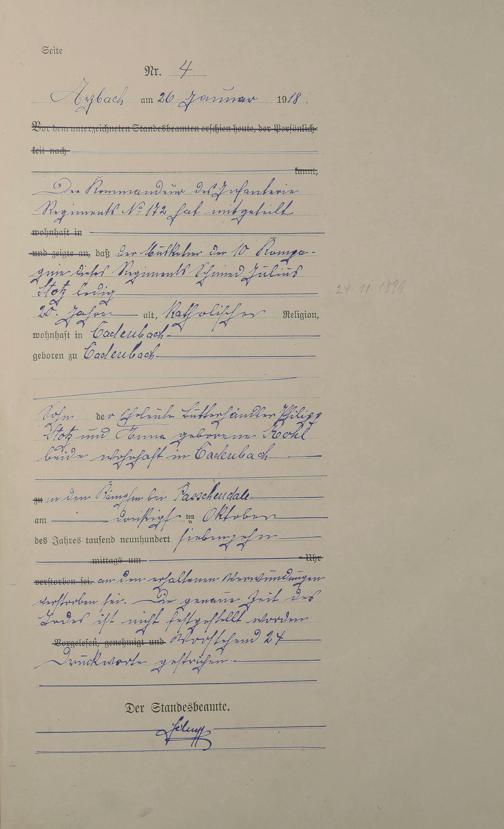 Seite
Nr. 4
Arzbach am 26 Januar 1918.
Vor dem unterzeichneten Standesbeamten erschien heute, der Persönlich-
keit nach
kannt,
Der Kommandeur des Infanterie
Regiments No 172 hat mitgeteilt
wohnhaft in
und zeigte an, daß der Musketier der 10 Kompa-
gnie dieses Regiments Schmed Julius
Stotz ledig
20 Jahre alt, katholischer Religion,
wohnhaft in Cadenbach
geboren zu Cadenbach
24.11.1896
Sohn der Eheleute Butterhändler Philipp
Stotz und Anna geborene Kohl
beide wohnhaft in Cadenbach
zu in den Kämpfen bei Passchendale
am dreißigsten Oktober
des Jahres tausend neunhundert siebenzehn
mittags um Uhr
verstorben sei. an den erhaltenen Verwundungen
verstorben sei. Die genaue Zeit des
Todes ist nicht festgestellt worden
Vorgelesen, genehmigt und Vorstehend 24
Druckworte gestrichen.
Der Standesbeamte.